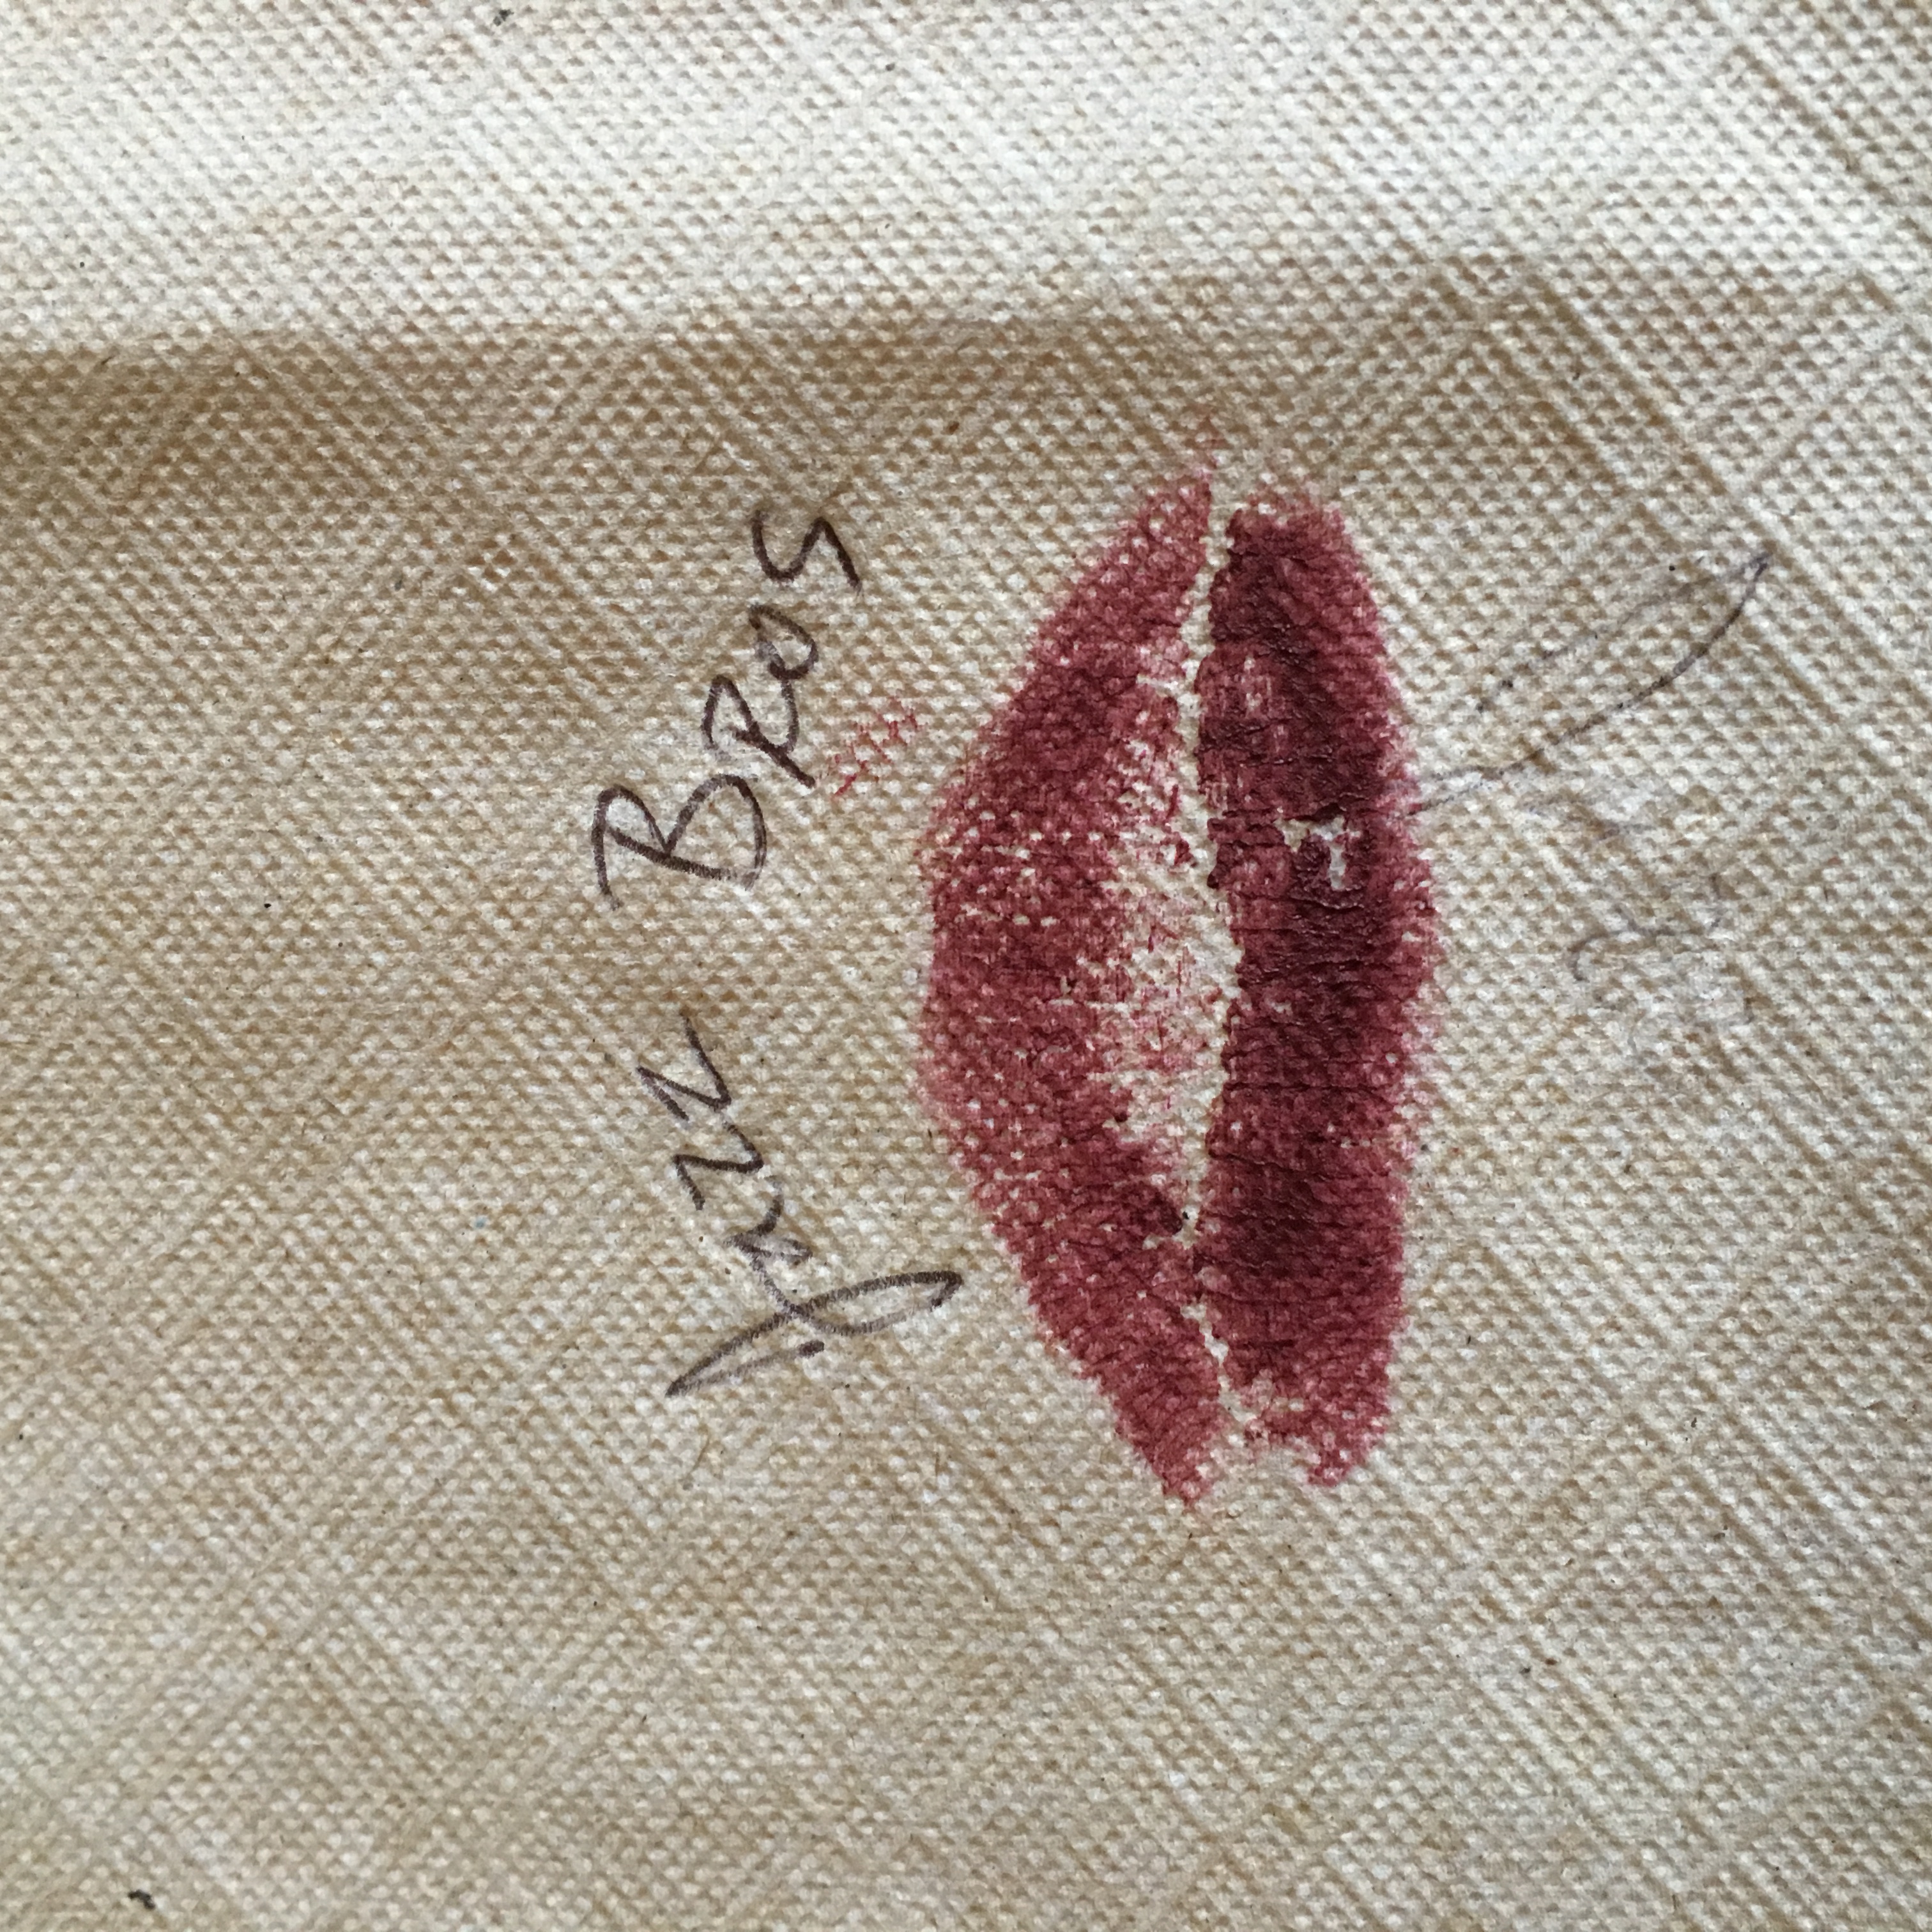 Jazz Bros